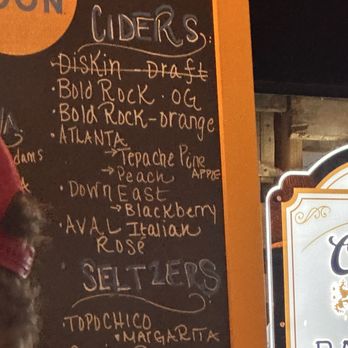 OON.
CIDERS
Diskin - Draft
· Bold Rock · OG
· Bold Rock - orange
· ATLANTA
→ Tepache Pine
APPLE
→ Peach
· Down East
→ Blackberry
· AVAL Italian
Rosé
SELTZERS
· TOPO CHICO
· MARGARITA
dams